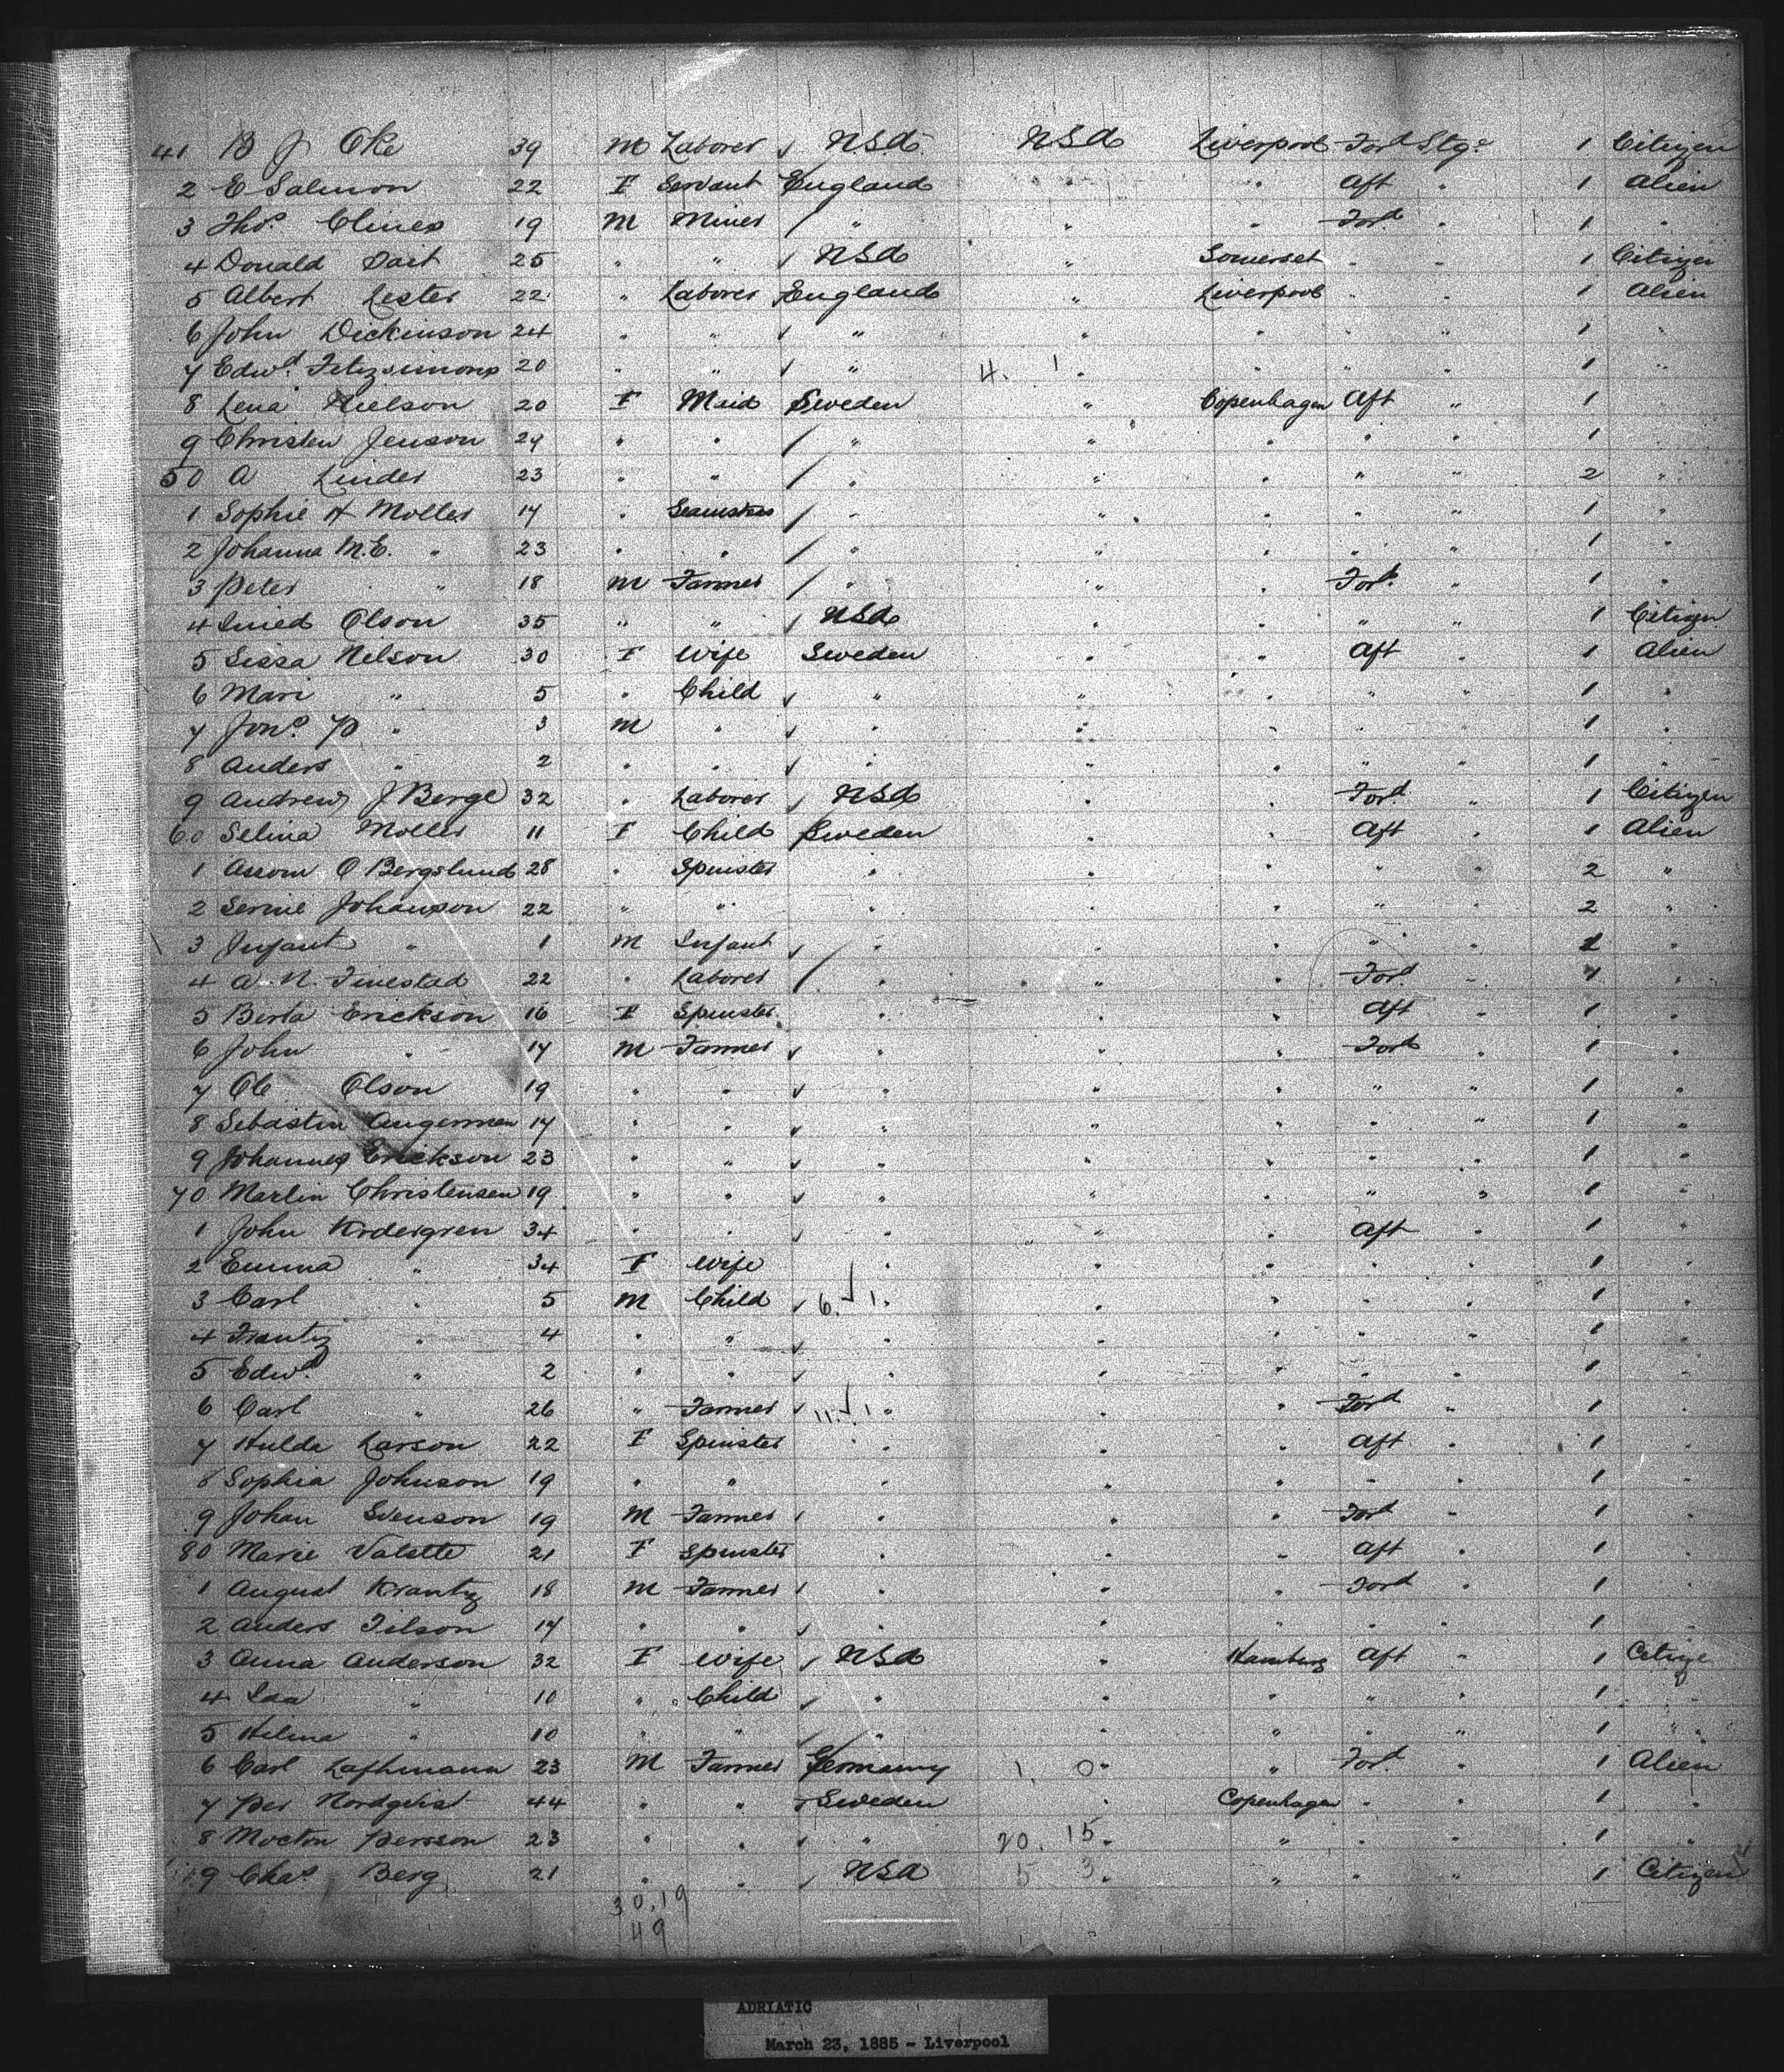 41 B J Oke 39 M Laborer ✓ USA USA Liverpool Ford Stge 1 Citizen
2 E Salmon 22 F Servant England " " Aft " 1 Alien
3 Thos. Clines 19 M Miner / " " " Ford " 1 "
4 Donald 25 " " ✓ USA " Somerset " " 1 Citizen
5 Albert Lester 22 " Laborer England " Liverpool " " 1 Alien
6 John Dickinson 24 " " ✓ " " " " " 1 "
7 Edwd. Fitzsimons 20 " " ✓ " 4. 1 " " " " 1 "
8 Lena Nielson 20 F Maid Sweden " Copenhagen Aft " 1 "
9 Christen Jenson 29 " " / " " " " " 1 "
50 A Linder 23 " " / " " " " " 2 "
1 Sophie H Moller 17 " Seamstress / " " " " " 1 "
2 Johanna M.E. " 23 " " / " " " " " 1 "
3 Peter " 18 M Farmer / " " " Ford " 1 "
4 Olson 35 " " ✓ USA " " " " 1 Citizen
5 Sissa Nilson 30 F Wife Sweden " " Aft " 1 Alien
6 Mari " 5 " Child ✓ " " " " " 1 "
7 Jons. P " 3 M " ✓ " " " " " 1 "
8 Anders " 2 " " ✓ " " " " " 1 "
9 Andrew J Berge 32 " Laborer ✓ USA " " Ford " 1 Citizen
60 Selina Moller 11 F Child Sweden " " Aft " 1 Alien
1 O Bergslund 28 " Spinster " " " " " 2 "
2 Serine Johanson 22 " " " " " " " 2 "
3 Infant " 1 M Infant ✓ " " " " " 1 "
4 A. N. Finestad 22 " Laborer / " " " Ford " 1 "
5 Berta Erickson 16 F Spinster " " " Aft " 1 "
6 John " 17 M Farmer ✓ " " " Ford " 1 "
7 Ole Olson 19 " " ✓ " " " " " 1 "
8 Sebastin Angermen 17 " " ✓ " " " " " 1 "
9 Johannes Erickson 23 " " ✓ " " " " " 1 "
70 Martin Christensen 19 " " ✓ " " " " " 1 "
1 John Kodergren 34 " " ✓ " " " Aft " 1 "
2 Emma " 34 F Wife " " " " " 1 "
3 Carl " 5 M Child ✓ 6. ✓ 1. " " " " " 1 "
4 Frantz " 4 " " ✓ " " " " " 1 "
5 Edwd. " 2 " " ✓ " " " " " 1 "
6 Carl " 26 " Farmer ✓ 11. ✓ 1 " " " Ford " 1 "
7 Hulda Larson 22 F Spinster " " " Aft " 1 "
8 Sophia Johnson 19 " " " " " " " 1 "
9 Johan Svenson 19 M Farmer ✓ " " " Ford " 1 "
80 Marie Valette 21 F Spinster " " " Aft " 1 "
1 August Krantz 18 M Farmer ✓ " " " Ford " 1 "
2 Anders Tilson 17 " " ✓ " " " " " 1 "
3 Anna Anderson 32 F Wife ✓ USA " Hamburg Aft " 1 Citize
4 Ida " 10 " Child ✓ " " " " " 1 "
5 Hilma " 10 " " ✓ " " " " " 1 "
6 Carl Lafhmann 23 M Farmer Germany 1. 0 " " Ford " 1 Alien
7 Per Nordqvist 44 " " Sweden " Copenhagen " " 1 "
8 Persson 23 " " ✓ " 20. 15. " " " 1 "
9 Chas. Berg 21 " " ✓ USA 5 3. " " " 1 Citizen
30.19
49
ADRIATIC
March 23, 1885 - Liverpool